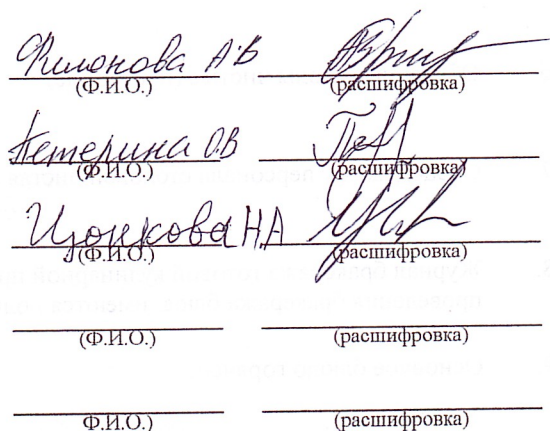 Филонова А.В
(Ф.И.О.) (расшифровка)
Петерина О.В
(Ф.И.О.) (расшифровка)
Цонкова Н.А
(Ф.И.О.) (расшифровка)
(Ф.И.О.) (расшифровка)
Ф.И.О.) (расшифровка)